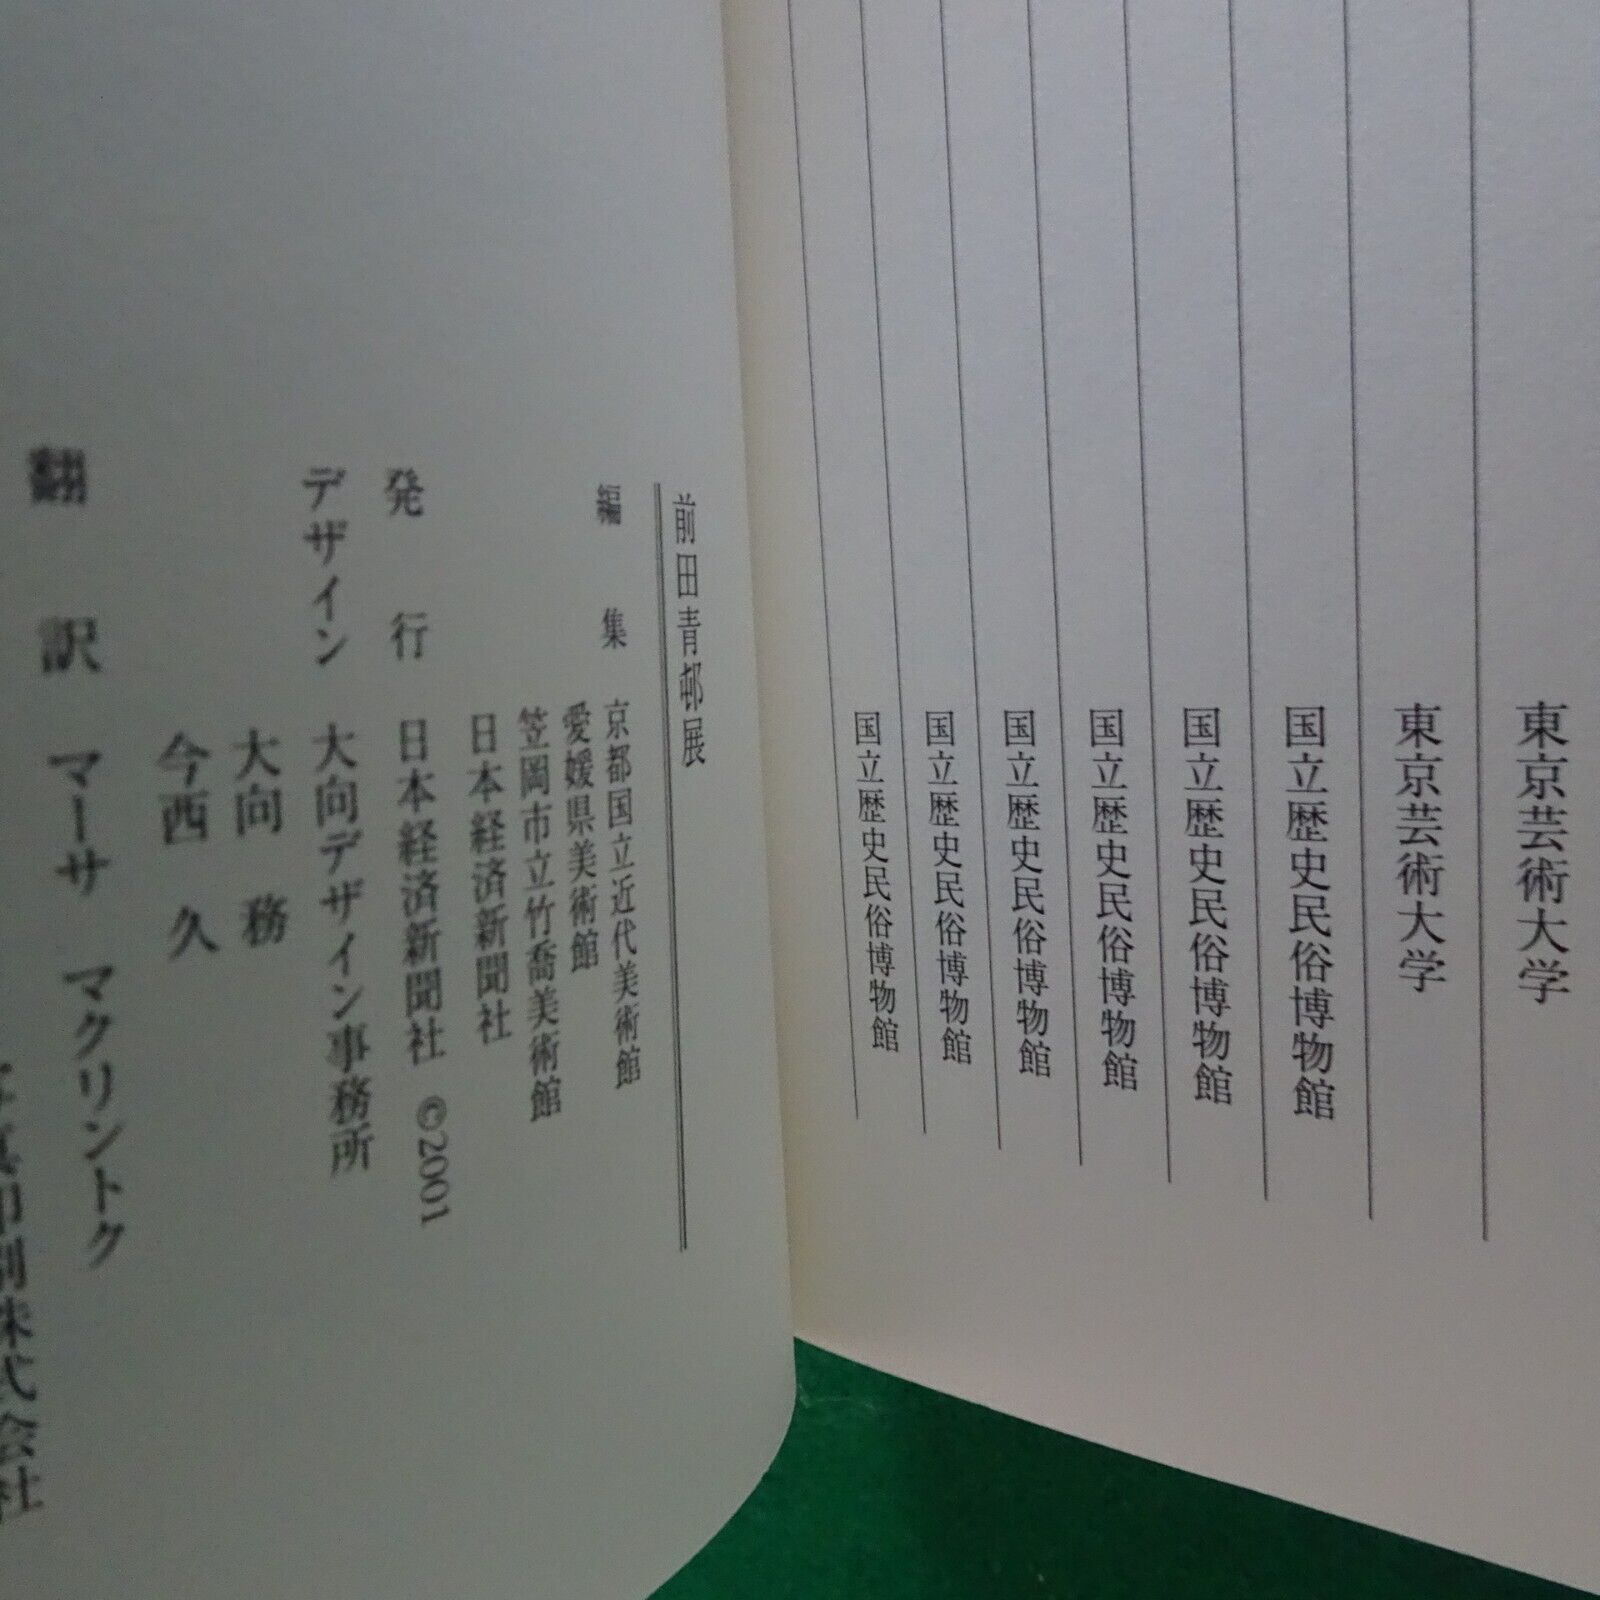 東京芸術大学
東京芸術大学
国立歴史民俗博物館
国立歴史民俗博物館
国立歴史民俗博物館
国立歴史民俗博物館
国立歴史民俗博物館
国立歴史民俗博物館
前田青邨展
編集 京都国立近代美術館
愛媛県美術館
笠岡市立竹喬美術館
日本経済新聞社
発行 日本経済新聞社 ©2001
デザイン 大向デザイン事務所
大向 務
今西 久
翻訳 マーサ マクリントク
真印刷株式会社